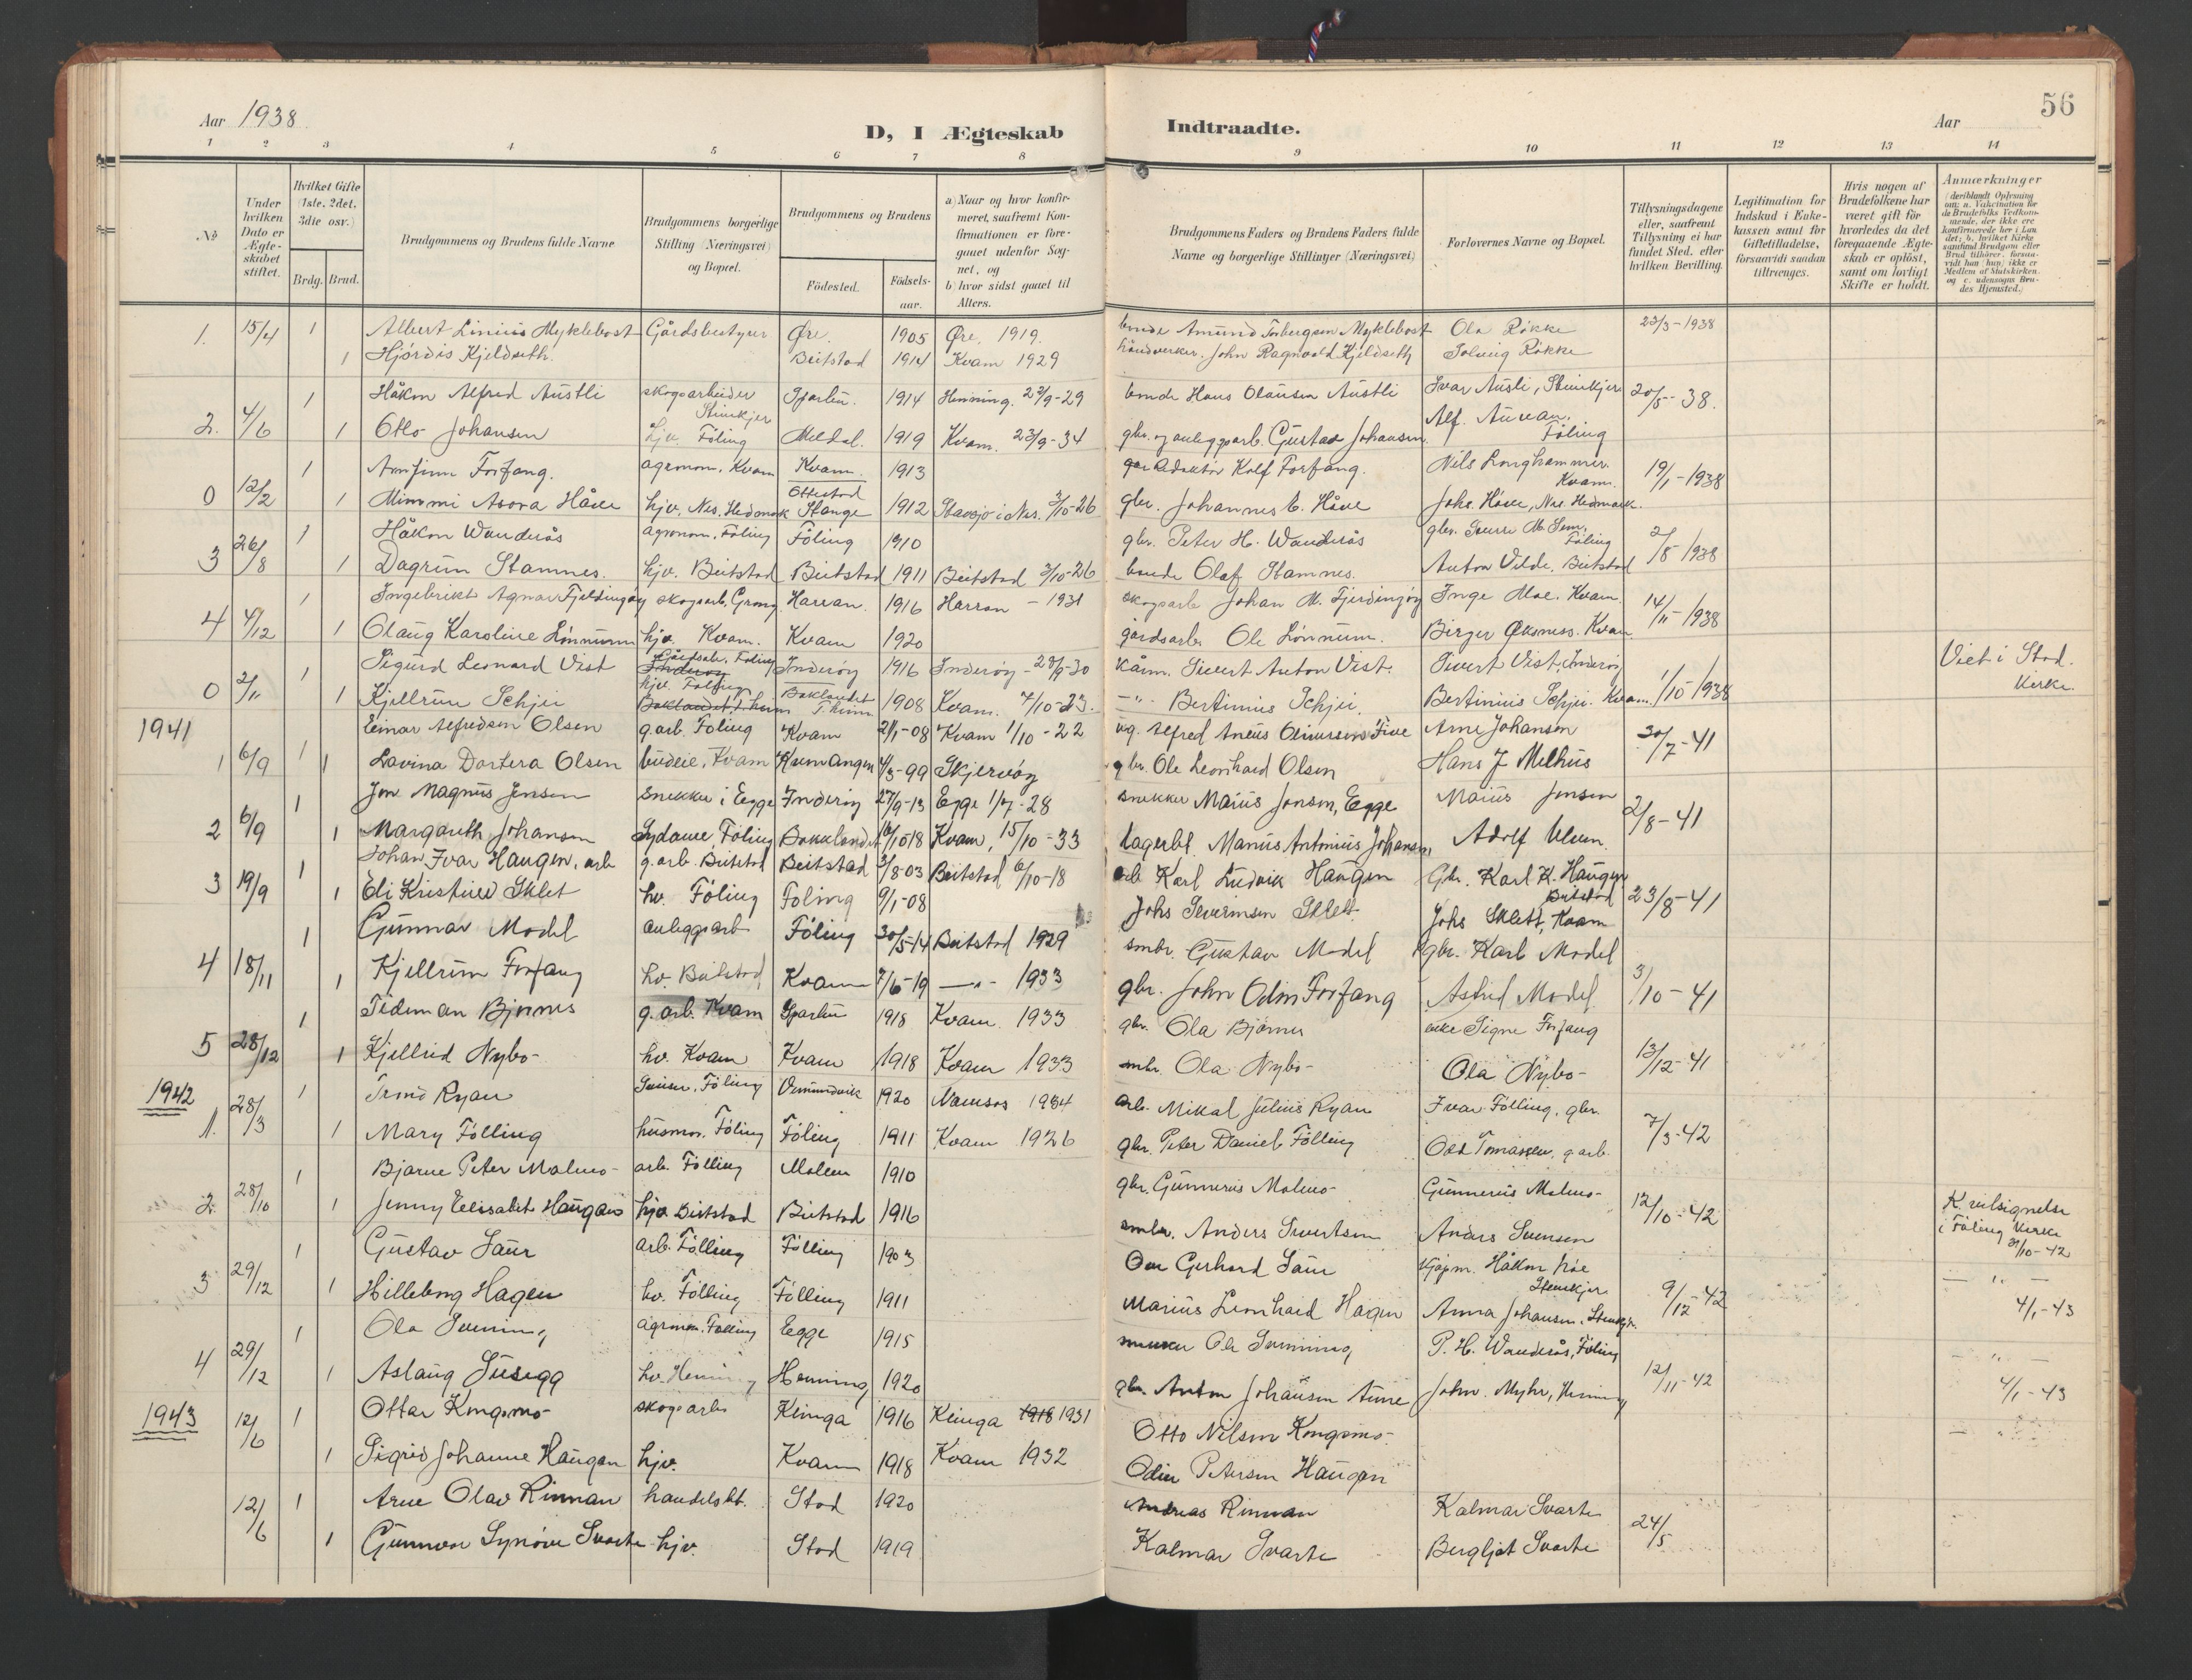 56
Aar 1938.
D, I Ægteskab Indtraadte.
Aar
1 2 3 4 5 6 7 8 9 10 11 12 13 14
№
Under hvilken Dato er Ægteskabet stiftet.
Hvilket Gifte (1ste, 2det, 3die osv.)
Brdg. Brud.
Brudgommens og Brudens fulde Navne
Brudgommens borgerlige Stilling (Næringsvei) og Bopæl.
Brudgommens og Brudens
Fødested. Fødselsaar.
a) Naar og hvor konfirmeret, saafremt Konfirmationen er foregaaet udenfor Sognet, og
b) hvor sidst gaaet til Alters.
Brudgommens Faders og Brudens Faders fulde Navne og borgerlige Stillinger (Næringsvei)
Forlovernes Navne og Bopæl.
Tillysningsdagene eller, saafremt Tillysning ei har fundet Sted, efter hvilken Bevilling.
Legitimation for Indskud i Enkekassen samt for Giftetilladelse, forsaavidt saadan tiltrænges.
Hvis nogen af Brudefolkene har været gift før hvorledes da det foregaaende Ægteskab er opløst, samt om lovligt Skifte er holdt.
Anmærkninger
(deriblandt Oplysning om: a. Vakcination for de Brudefolks Vedkommende, der ikke ere konfirmerede her i Landet; b. hvilket Kirkesamfund Brudgom eller Brud tilhører, forsaavidt han (hun) ikke er Medlem af Statskirken, og c. udensogns Brudes Hjemsted.)
1. 15/4 1 Albert Linius Myklebost Gårdsbestyrer Øre. 1905 Øre. 1919. bonde Amund Torbergsen Myklebost Ola Røkke 23/3-1938
1 Hjørdis Kjeldseth. Beitstad 1914 Kvam 1929 håndverker. John Ragnvald Kjeldseth Solveig Røkke
1 Håkon Alfred Austli skogsarbeider Steinkjer Sparbu. 1914 Henning. 22/9-29 bonde Hans Olausen Austli Ivar Austli, Steinkjer 20/5-38.
2. 4/6 1 Otto Johansen hjv. Føling Meldal. 1919 Kvam. 23/9-34 gbr. og anleggsarb. Gustav Johansen. Alf. Auran. Føling
1 Arnfinn Forfang. agronom. Kvam Kvam. 1913 Rolf Forfang. Nils Longhammer. Kvam. 19/1-1938
0 12/2 1 Mimmi Asora Håve hjv. Nes. Hedmark Ottestad Stange 1912 Stavsjø i Nes. 3/10-26 gbr. Johannes C. Håve Johs. Håve, Nes. Hedmark.
1 Håkon Wanderås agronom. Føling Føling 1910 gbr. Peter H. Wanderås gbr. Sverre M. Sem. Føling 2/8-1938
3 26/8 1 Dagrun Stamnes. hjv. Beitstad Beitstad 1911 Beitstad 3/10-26 bonde Olaf Stamnes. Anton Vilde. Beitstad
1 Ingebrikt Agnar Fjerdingøy skogsarb. Grong. Harran. 1916 Harran - 1931 skogsarb Johan M. Fjerdingøy Inge Moe. Kvam. 14/11-1938
4 4/12 1 Olaug Karoline Lønnum hjv. Kvam. Kvam 1920 gårdsarb. Ole Lønnum. Birger Øksnes. Kvam
1 Sigurd Leonard Vist Gårdsarb. Føling Inderøy Inderøy 1916 Inderøy - 28/9-30 kårm. Sivert Anton Vist. Sivert Vist, Inderøy Viet i Stod. Kirke.
0 2/11 1 Kjellrun Schjei hjv. Føling Baklandet T.heim Baklandet T.heim 1908 Kvam. 7/10-23. -"- Bertinius Schjei. Bertinius Schjei. Kvam. 1/10-1938
1941
1 Einar Alfredsen Olsen g.arb. Føling Kvam 21/1-08 Kvam 1/10-22 Alfred Aneus Arne Johansen 30/7-41
1 6/9 1 Lavina Dortera Olsen budeie, Kvam Kvenangen 4/3-99 Skjervøy gbr. Ole Leonhard Olsen Hans J Melhus
1 Jon Magnus Jensen snekker i Egge Inderøy 27/9-13 Egge 1/7-28 snekker Marius Jensen, Egge Marius Jensen 2/8-41
2 6/9 1 Margareth Johansen Sydame, Føling Bakklandet 16/10 18 Kvam, 15/10-33 Lagerbt. Marius Antonius Johansen, Adolf
1 Johan Ivar Haugen, arb g.arb. Beitstad Beitstad 3/8-03 Beitstad 6/10-18 arb Karl Ludvik Haugen Gbr. Karl K. Haugen Beitstad 23/8-41
3 19/9 1 Eli Kristine Sklet hv. Føling Føling 9/1-08 Johs Severinsen Sklett Johs Sklett, Kvam
1 Gunnar Modell anleggsarb Føling 30/5-14 Beitstad 1929 smbr. Gustav Model gbr. Karl Model 3/10-41
4 18/11 1 Kjellrun Forfang hv. Beitstad Kvam 7/6-19 -"- 1933 gbr. John Odin Forfang Astrid Model
1 Tideman Bjørnes g.arb. Kvam Sparbu 1918 Kvam. 1933 gbr. Ola Bjørnes enke Signe Forfang 13/12-41
5 28/12 1 Kjellrid Nybo- hv. Kvam Kvam 1918 Kvam 1933 smbr. Ola Nybo- Ola Nybo-
1942
1 Trond Ryan Føling Vemundvik 1920 Namsos 1934 arb. Mikal Julius Ryan Ivar Følling, gbr. 7/3-42
1. 28/3 1 Mary Følling husmor. Føling Føling 1911 Kvam 1926 gbr. Peter Daniel Følling Odd Tomassen, g.arb.
1 Bjarne Peter Malmo- arb. Følling Malm 1910 gbr. Gunnerius Malmo- Gunnerius Malmo- 12/10-42 K. velsignelse i Føling Kirke 31/10-42
2. 28/10 1 Jenny Elisabet Haugan hjv. Beitstad Beitstad 1916 smbr. Anders Sivertsen Anders Svensen
1 Gustav Saur arb. Følling Følling 1903 Ove Gerhard Saur Kjøpm. Håkon Five Steinkjer 9/12-42 - " - 4/1-43
3 29/12 1 Hilleborg Hagen hv. Følling Følling 1911 Marius Leonhard Hagen Anna Johansen, Steinkjer.
1 Ola Svenning agronom. Følling Egge 1915 snekker Ole Svenning P. H. Wanderås, Føling 12/11-42 - " - 4/1-43
4 29/12 1 Aslaug Susegg hv. Henning Henning 1920 gbr. Anton Johansen Aune John. Myhr, Henning
1943
12/6 1 Ottar Kongsmo- skogsarb Klinga 1916 Klinga 1918 1931 Otto Nilsen Kongsmo- - " -
1 Sigrid Johanne Haugan hjv. Kvam 1918 Kvam 1932 Odin Petersen Haugan
12/6 1 Arne Olav Rinnan handelsbt. Stod 1920 Andreas Rinnan Kalmar Svarte 24/5
1 Gunnvor Synøve Svarte hjv. Stod 1919 Kalmar Svarte Bergljot Svarte